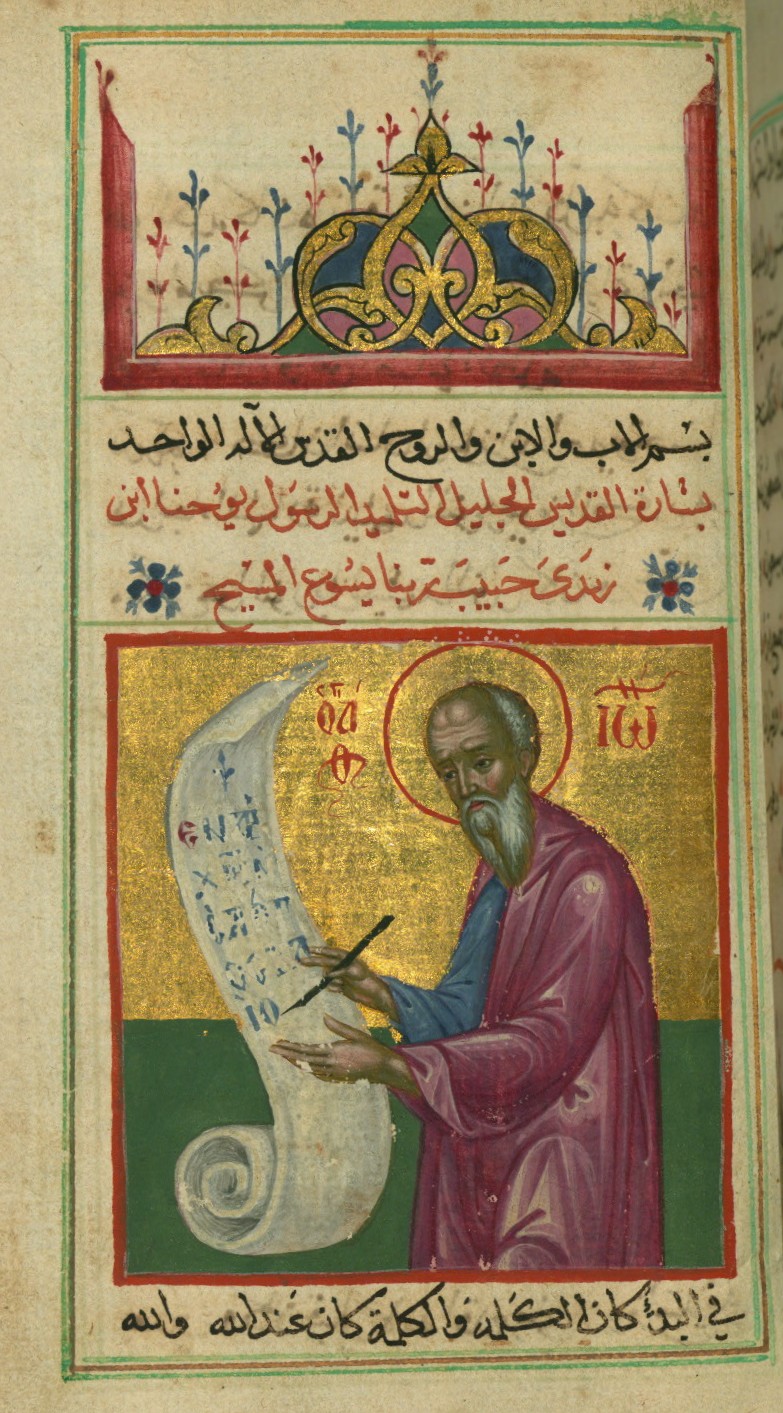 بسم الاب والابن والروح القدس الاله الواحد
بشارة القديس الجليل التلميذ الرسول يوحنا ابن
زبدى حَبيبَ رّبنا يسُوع المسيح
ὉΑ
ΙѠ
ΕΝ
ΙΟ
في البدئ كان الكلمه وَالكلمة كان عَند الله والله